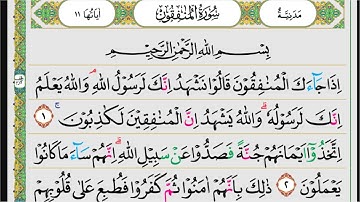 مَدَنِيَّةٌ
سُوْرَةُ الْمُنٰفِقُوْنَ
اٰيَاتُهَا ١١
بِسْمِ اللّٰهِ الرَّحْمٰنِ الرَّحِيْمِ
اِذَا جَاۤءَكَ الْمُنٰفِقُوْنَ قَالُوْا نَشْهَدُ اِنَّكَ لَرَسُوْلُ اللّٰهِ ۘ وَاللّٰهُ يَعْلَمُ
اِنَّكَ لَرَسُوْلُهٗ ۗ وَاللّٰهُ يَشْهَدُ اِنَّ الْمُنٰفِقِيْنَ لَكٰذِبُوْنَ ۚ ١
اِتَّخَذُوْٓا اَيْمَانَهُمْ جُنَّةً فَصَدُّوْا عَنْ سَبِيْلِ اللّٰهِ ۗ اِنَّهُمْ سَاۤءَ مَا كَانُوْا
يَعْمَلُوْنَ ٢ ذٰلِكَ بِاَنَّهُمْ اٰمَنُوْا ثُمَّ كَفَرُوْا فَطُبِعَ عَلٰى قُلُوْبِهِمْ